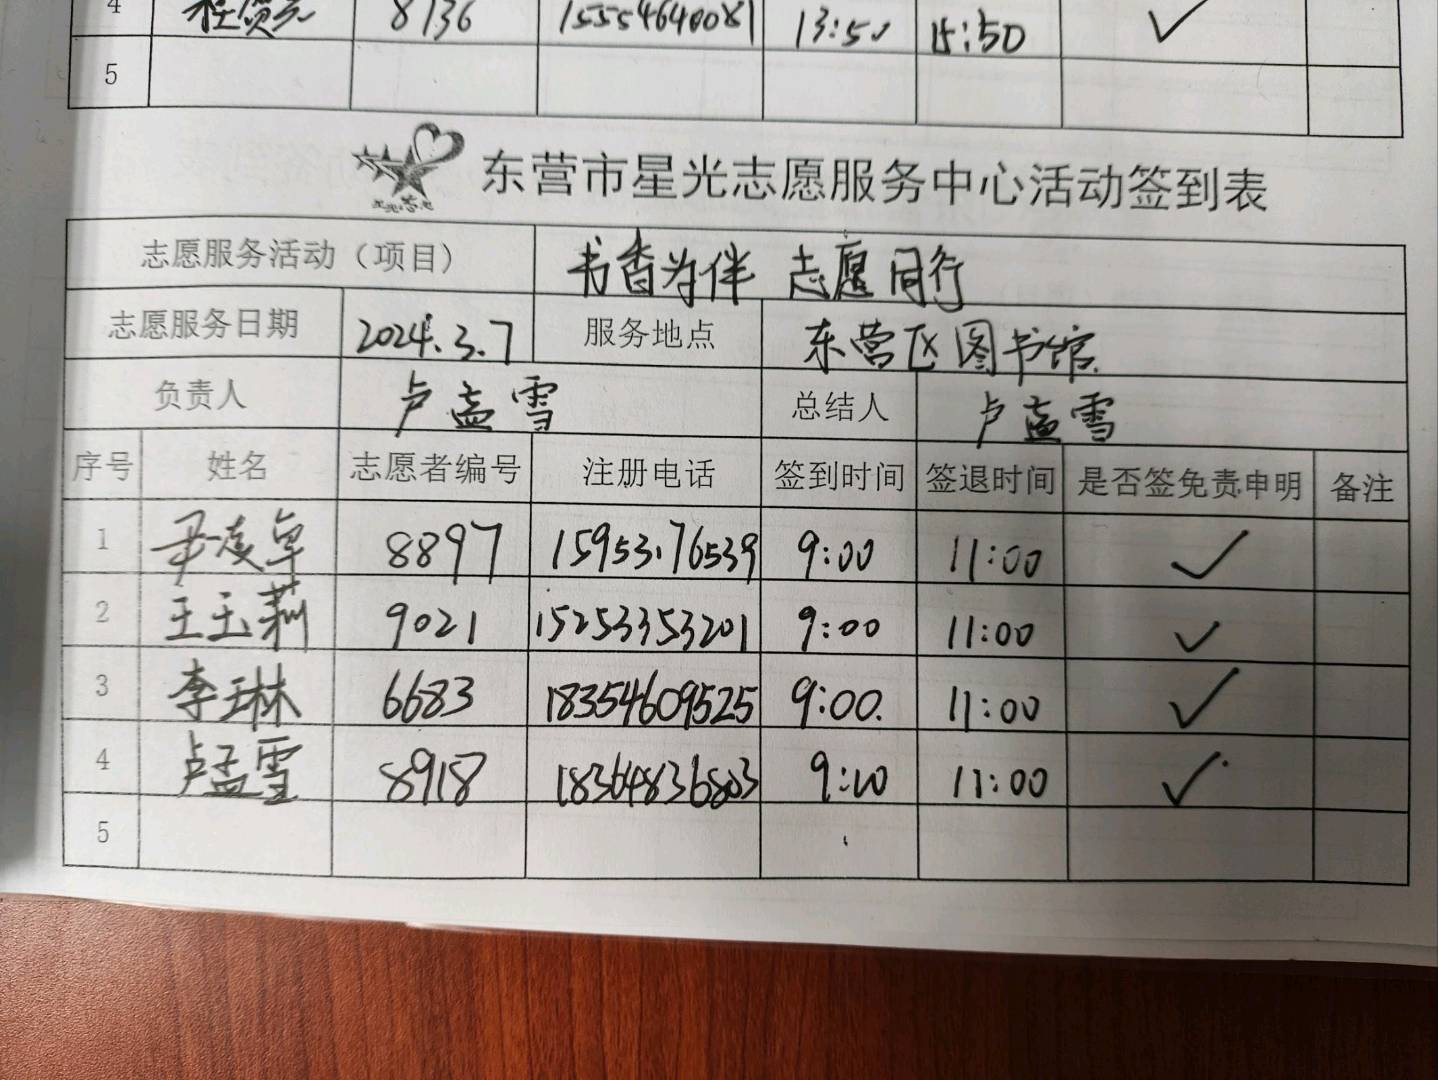 4 8136 15554640081 13:50 15:50 ✓
5
星光志愿
东营市星光志愿服务中心活动签到表
志愿服务活动（项目） 书香为伴 志愿同行
志愿服务日期 2024.3.7 服务地点 东营区图书馆
负责人 卢孟雪 总结人 卢孟雪
序号 姓名 志愿者编号 注册电话 签到时间 签退时间 是否签免责申明 备注
1 尹凌卓 8897 15953.76539 9:00 11:00 ✓
2 王玉莉 9021 15253353201 9:00 11:00 ✓
3 李琳 6683 18354609525 9:00. 11:00 ✓
4 卢孟雪 8918 18364836803 9:00 11:00 ✓
5